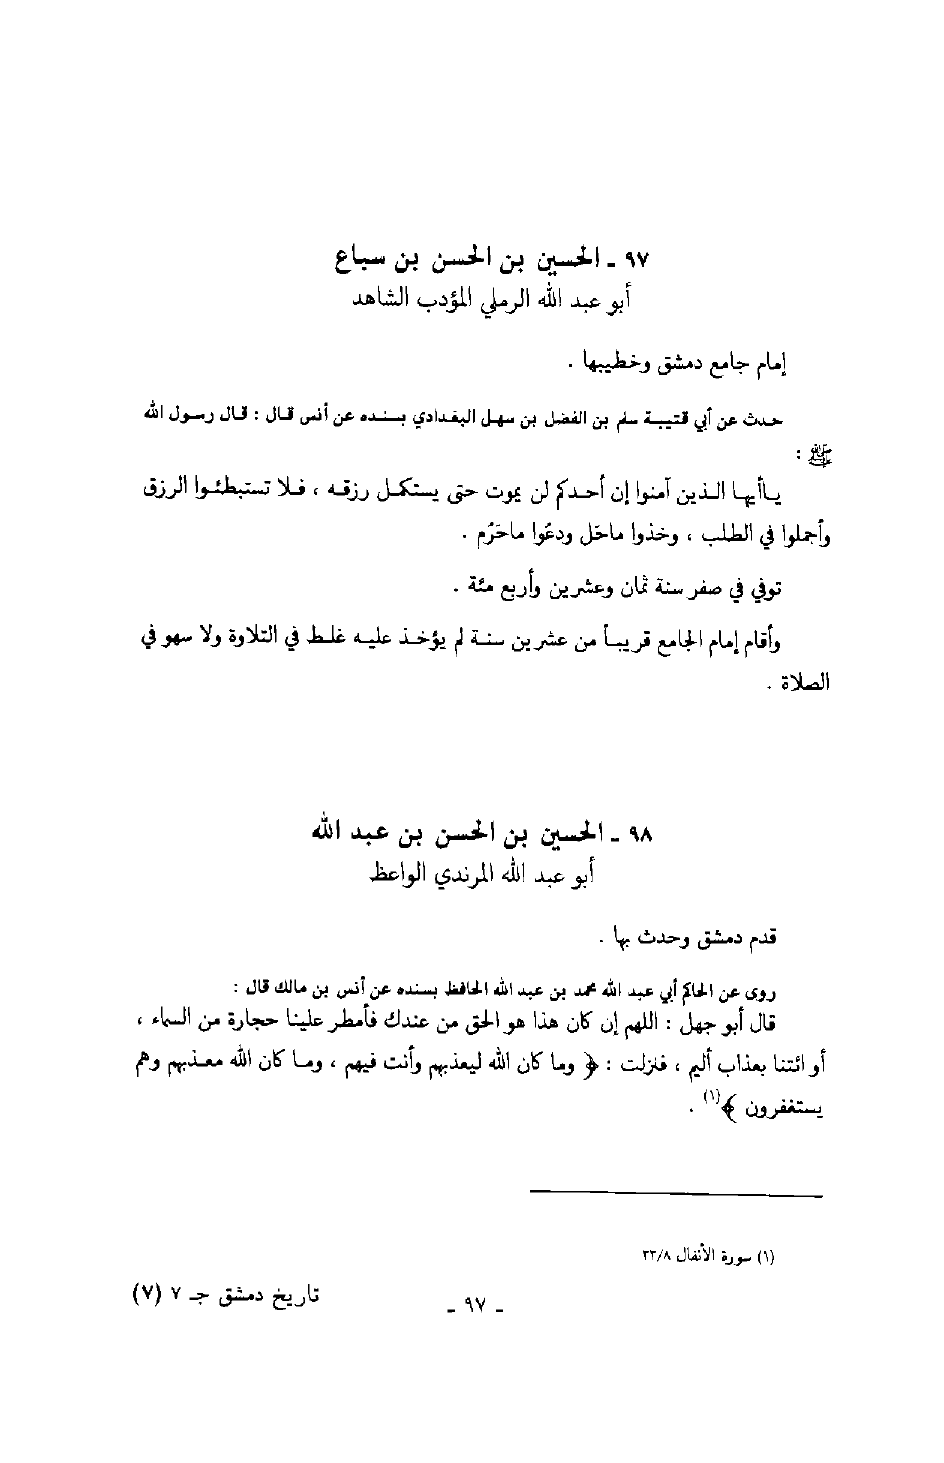 ٩٧ ـ الحسين بن الحسن بن سباع
أبو عبد الله الرملي المؤدب الشاهد
إمام جامع دمشق وخطيبها .
حدث عن أبي قتيبة سلم بن الفضل بن سهل البغدادي بسنده عن أنس قال : قال رسول الله
ﷺ :
ياأيها الذين آمنوا إن أحدكم لن يموت حتى يستكمل رزقه ، فلا تستبطئوا الرزق
وأجملوا في الطلب ، وخذوا ماحَل ودعُوا ماحَرُم .
توفي في صفر سنة ثمان وعشرين وأربع مئة .
وأقام إمام الجامع قريباً من عشرين سنة لم يؤخذ عليه غلط في التلاوة ولا سهو في
الصلاة .
٩٨ ـ الحسين بن الحسن بن عبد الله
أبو عبد الله المرندي الواعظ
قدم دمشق وحدث بها .
روى عن الحاكم أبي عبد الله محمد بن عبد الله الحافظ بسنده عن أنس بن مالك قال :
قال أبو جهل : اللهم إن كان هذا هو الحق من عندك فأمطر علينا حجارة من السماء ،
أو ائتنا بعذاب أليم ، فنزلت : ﴿ وما كان الله ليعذبهم وأنت فيهم ، وما كان الله معذبهم وهم
يستغفرون ﴾(١) .
(١) سورة الأنفال ٣٣/٨
تاريخ دمشق جـ ٧ (٧)
ـ ٩٧ ـ